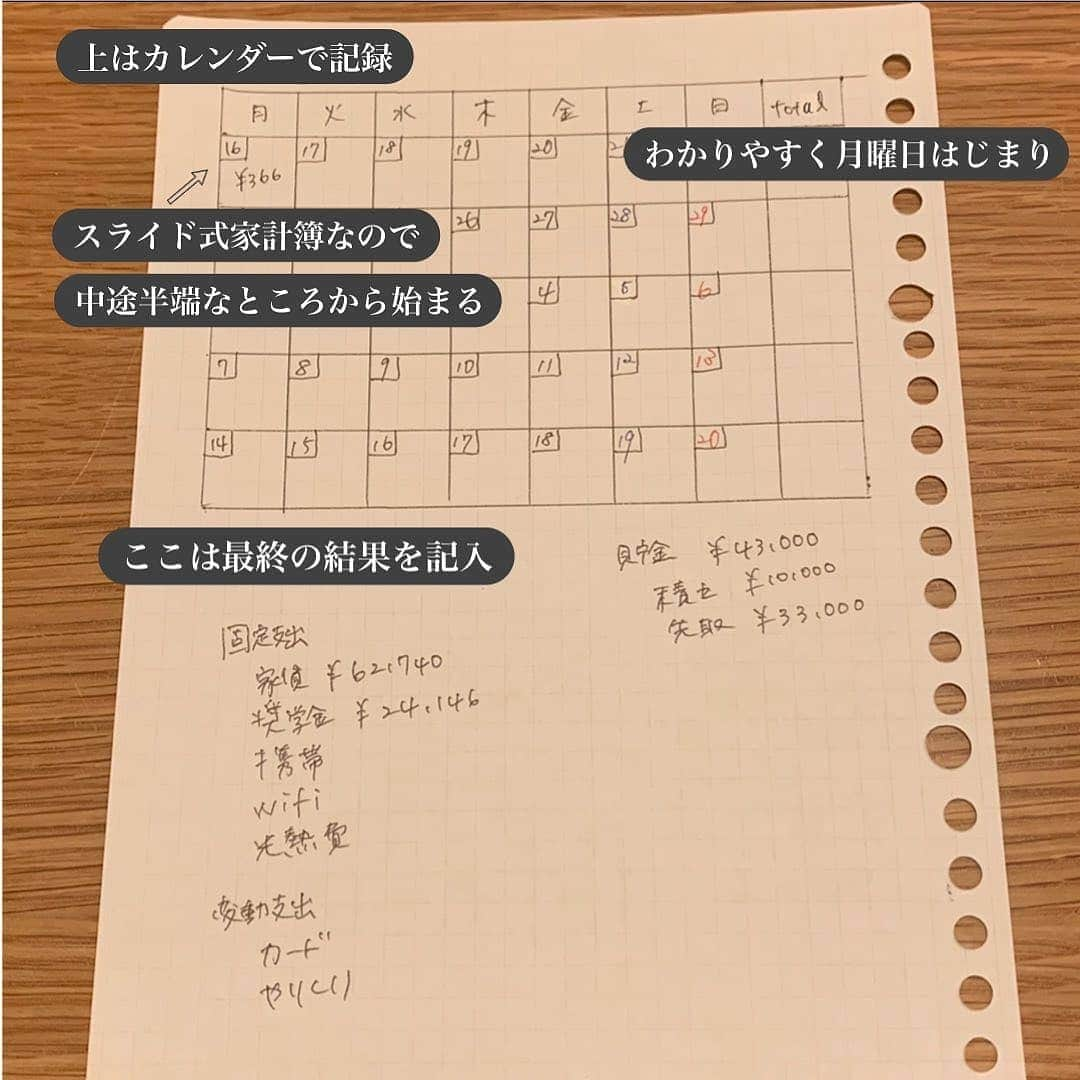 上はカレンダーで記録
月 火 水 木 金 土 日 total
16 17 18 19 20
わかりやすく月曜日はじまり
¥366
スライド式家計簿なので
26 27 28 29
中途半端なところから始まる
4 5 6
7 8 9 10 11 12 13
14 15 16 17 18 19 20
ここは最終の結果を記入
貯金 ¥43,000
積立 ¥10,000
先取 ¥33,000
固定支出
家賃 ¥62,740
奨学金 ¥24,146
携帯
wifi
光熱費
変動支出
カード
やりくり